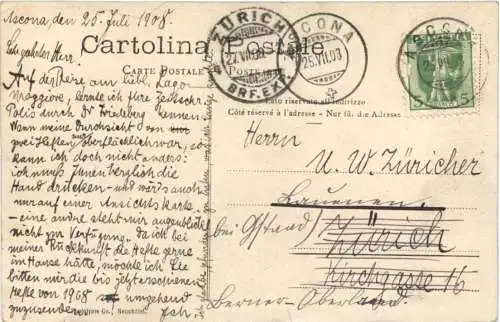 Ascona, den 25. Juli 1908.
Sehr geehrter Herr!
Auf der Reise am lieb. Lago
Maggiore, lernte ich Ihre Zeitschr.
Polis durch Dr Friedeberg kennen.
Wenn meine Durchsicht von
zwei Heften oberflächlich war, so
kann ich doch nicht anders:
ich muss Ihnen herzlich die
Hand drücken – und wär's auch
nur auf einer Ansichtskarte
– eine andre steht mir augenblickl.
nicht zur Verfügung. Da ich bei
meiner Rückkunft die Hefte gerne
im Hause hätte, möchte ich Sie
bitten mir die bis jetzt erschienen
Hefte von 1908 umgehend
zuzusenden. Ich
Cartolina Postale
CARTE POSTALE
POSTKARTE
Lato riservato all'indirizzo
Côté réservé à l'adresse - Nur für die Adresse
ZÜRICH
BRF. EXP.
ASCONA
25.VII.08
HELVETIA
5 5
Herrn
U. W. Züricher
Lauenen,
bei Gstaad
Zürich
Kirchgasse 16
Berner-Oberland